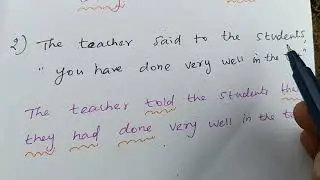 2) The teacher said to the students,
" you have done very well in the
The teacher told the students
they had done very well in the